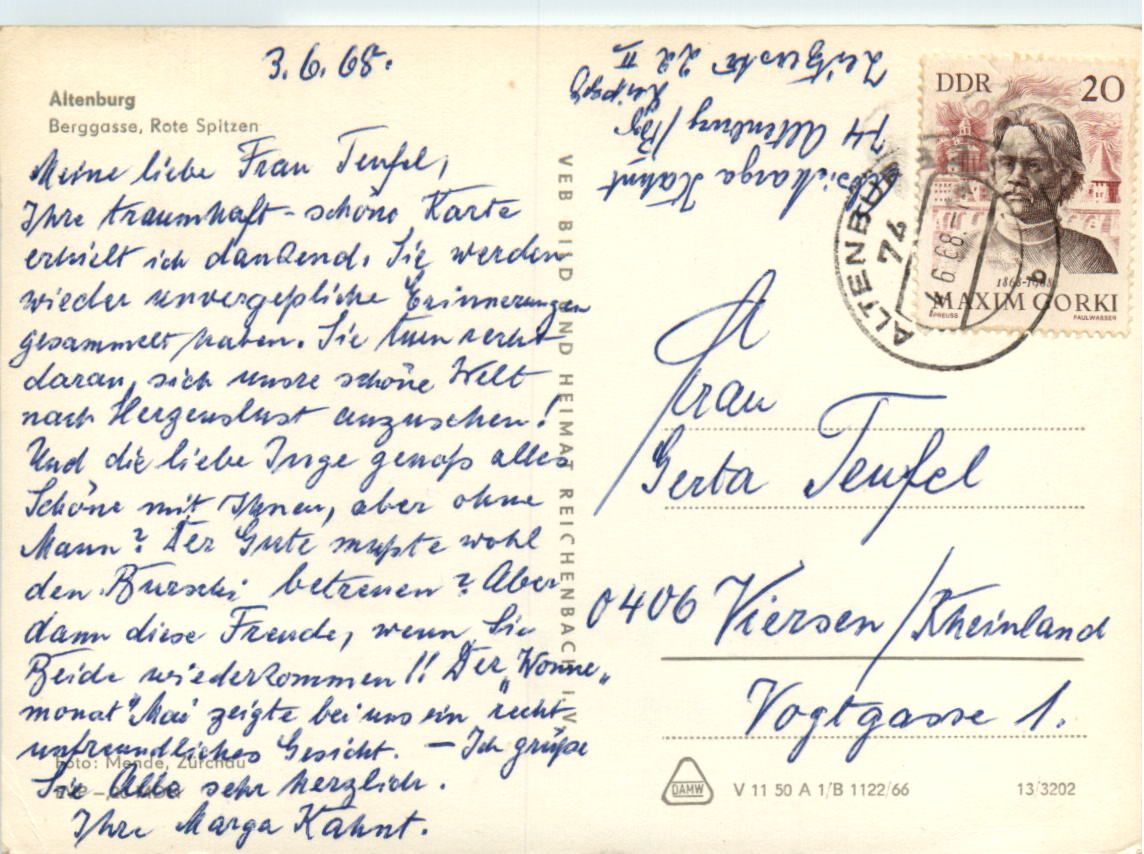 3.6.68.
Altenburg
Berggasse, Rote Spitzen
Meine liebe Frau Teufel,
Ihre traumhaft-schöne Karte
erhielt ich dankend. Sie werden
wieder unvergeßliche Erinnerungen
gesammelt haben. Sie tuen recht
daran, sich unsre schöne Welt
nach Herzenslust anzusehen!
Und die liebe Inge genoß alles
Schöne mit Ihnen, aber ohne
Mann? Der Gute mußte wohl
den Burschi betreuen? Aber
dann diese Freude, wenn Sie
Beide wiederkommen!! Der „Wonne„
monat" Mai zeigte bei uns ein recht
unfreundliches Gesicht. – Ich grüße
Sie Alle sehr herzlich.
Ihre Marga Kahnt.
Foto: Mende, Zürchau
VEB BILD UND HEIMAT REICHENBACH i. V.
Marga Kahnt
74 Altenburg/Bz
Leipzig
22 II
DDR 20
1868-1968
MAXIM GORKI
PREUSS PAULWASSER
ALTENBURG
74
4.6.68
b
Frau
Gerta Teufel
0406 Viersen/Rheinland
Vogtgasse 1.
DAMW V 11 50 A 1/B 1122/66 13/3202